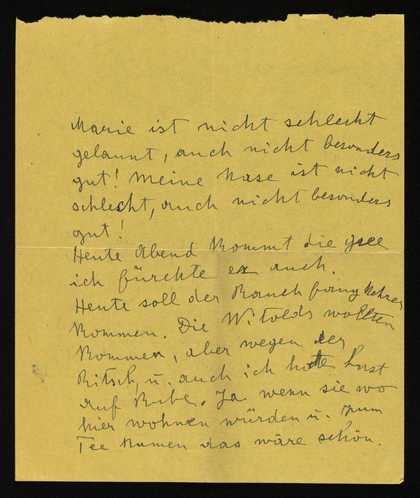 Marie ist nicht schlecht
gelaunt, auch nicht besonders
gut! Meine Nase ist nicht
schlecht, auch nicht besonders
gut!
Heute Abend kommt die
ich fürchte es auch.
Heute soll der Rauch
kommen. Die Witolds wollten
kommen, aber wegen der
Kitsch u. auch ich hatte Lust
auf Ruhe. Ja wenn sie wo
hier wohnen würden u. zum
Tee kumen das wäre schön.